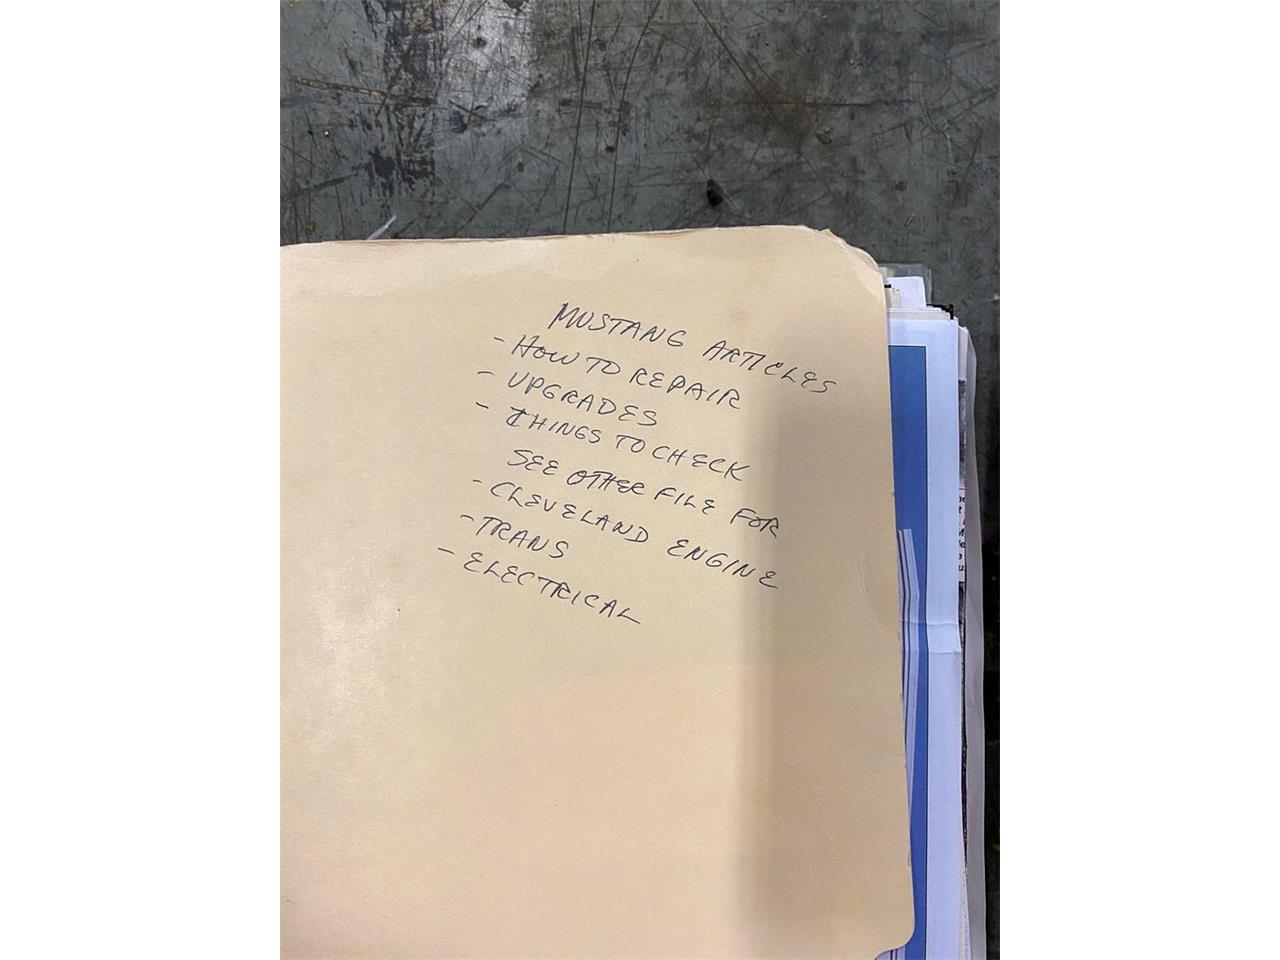 MUSTANG ARTICLES
- HOW TO REPAIR
- UPGRADES
- THINGS TO CHECK
SEE OTHER FILE FOR
- CLEVELAND ENGINE
- TRANS
- ELECTRICAL